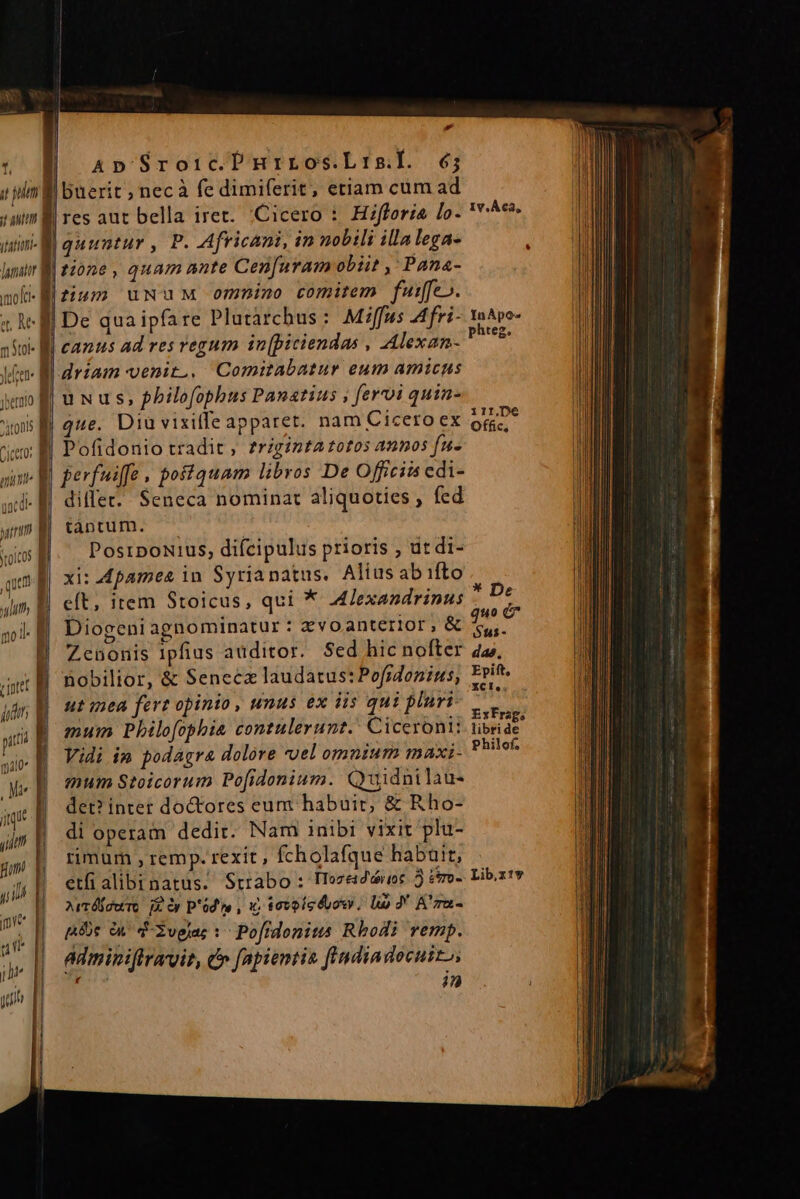 AD STOIC. PHILOS. LIB. I. 63
buerit, nec à se dimiserit, etiam cum ad
res aut bella iret. Cicero: Historiæ lo-
quuntur, P. Africani, in nobili illa lega-
tione, quam ante Censuram obiit, Panæ-
tium UNUM omnino comitem fuisse.
De qua ipsa re Plutarchus: Missus Afri-
canus ad res regum inspiciendas, Alexan-
driam venit. Comitabatur eum amicus
UNUS, philosophus Panætius, servi quin-
que. Diu vixisse apparet. nam Cicero ex
Posidonio tradit, triginta totos annos su-
perfuisse, postquam libros De Officiis edi-
disset. Seneca nominat aliquoties, sed
tantum.
POSIDONIUS, discipulus prioris, ut di-
xi: Apameæ in Syria natus. Alius ab isto
est, item Stoicus, qui * Alexandrinus
Diogeni agnominatur: ævo anterior, &
Zenonis ipsius auditor. Sed hic noster
nobilior, & Senecæ laudatus: Posidonius,
ut mea fert opinio, unus ex iis qui pluri-
mum Philosophiæ contulerunt. Ciceroni:
Vidi in podagræ dolore vel omnium maxi-
mum Stoicorum Posidonium. Quidni lau-
det? inter doctores eum habuit, & Rho-
di operam dedit. Nam inibi vixit plu-
rimum, remp. rexit, scholasque habuit,
etsi alibi natus. Strabo: Ποσειδώνιος δ' ἐπο-
λιτεύσατο μὲν ἐν Ῥόδῳ, καὶ ἐσοφίστευσεν. ἦν δ' Ἀπα-
μεὺς ἐκ τῆς Συρίας: Posidonius Rhodi remp.
administravit, & sapientiæ studia docuit,
in
IV. Aca,
In Apo-
phteg.
III. De
Offic,
* De
quo &
Sui-
das,
Epist.
XCI.
Ex Frag,
libri de
Philos.
Lib. XIV